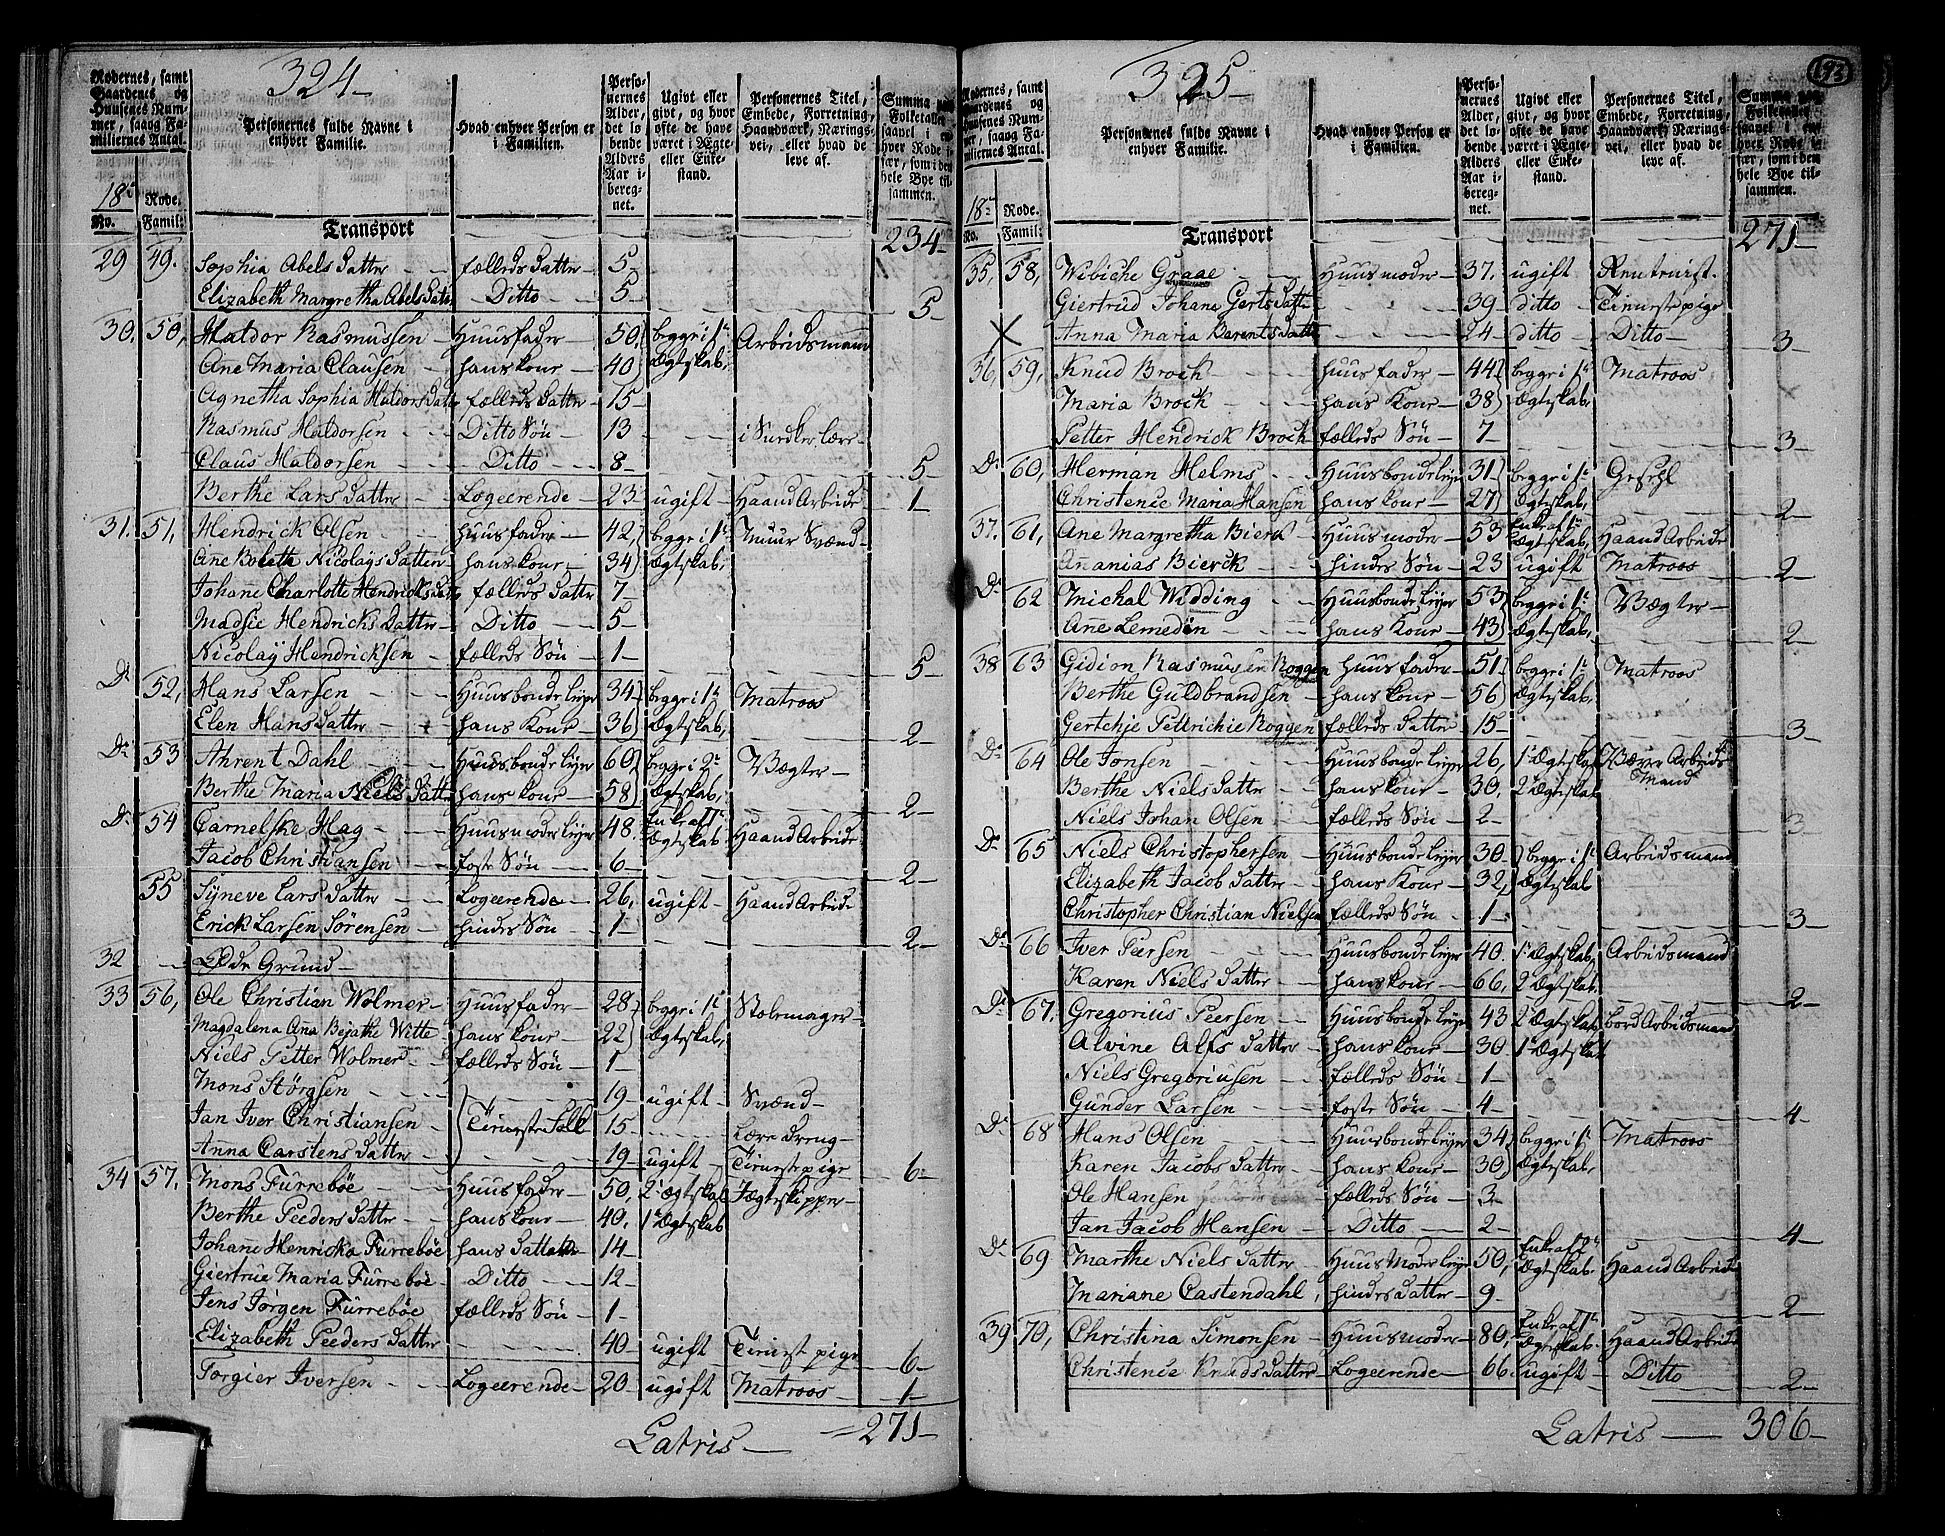 324
Rodernes, samt Gaardenes og Huusenes Nummer, saaog Familiernes Antal.
Personernes fulde Navne i enhver Familie.
Hvad enhver Person er i Familien.
Personernes Alder, det løbende Alders Aar iberegnet.
Ugivt eller givt, og hvor ofte de have været i Ægte- eller Enkestand.
Personernes Titel, Embede, Forretning, Haandværk, Næringsvei, eller hvad de leve af.
Summa paa Folketallet saavel i enhver Rode især, som i den hele Bye tilsammen.
18de Rode.
No. Famil:
Transport 234
29 49. Sophia Abels Datter fælleds Datter 5
Elizabeth Margretha Abels Datter Ditto 5 5
30. 50, Haldor Rasmussen Huusfader 50 begge i 1te Arbeidsmand
Ane Maria Clausen hans kone 40 Ægteskab,
Agnetha Sophia Haldors Datter fælleds Datter 15
Rasmus Haldorsen Ditto Søn 13 i Snedker lære
Claus Haldorsen Ditto 8 5
Berthe Lars Datter Logeerende 23 ugift Haand Arbeide 1
31. 51, Hendrick Olsen huusfader 42, begge i 1te Muur Svend
Ane Boleth Nicolays Datter hans kone 34 Ægteskab,
Johane Charlotte Hendricks Datter fælleds Datter 7
Madsie Hendricks Datter Ditto 5
Nicolaÿ Hendricksen fælleds Søn 1 5
Do 52, Hans Larsen Huusbonde leyer 34 begge i 1te Matroos
Elen Hans Datter hans Kone 36 Ægteskab, 2
Do 53 Ahrent Dahl Huusbonde leyer 60 begge i 2te Vægter
Berthe Maria Niels Datter hans kone 58 Ægteskab, 2
Do 54 Carnelske Hag Huusmoder leyer 48. Enke af 1te Ægteskab Haand Arbeide
Jacob Christiansen foste Søn 6 2
55 Syneve Lars Datter Logeerende 26, ugift Haand Arbeide
Erick Larsen Sörensen hindes Søn 1 2
32 Øde Grund
33 56, Ole Christian Wolmer Huusfader 28 begge i 1te Stolemager
Magdalena Ana Bejathe Witte hans kone 22 Ægteskab,
Niels Petter Wolmer fælleds Søn 1
Mons Störgsen 19 ugift Svend
Jan Iver Christiansen Tieneste Folk 15 Lære dreng
Anna Carstens Datter 19 ugift Tienestepige 6
34 57. Mons Furreböe Huusfader 50, 2de Ægteskab Jægteskipper
Berthe Peeders Datter hans kone 40, 1te Ægteskab
Johane Henricka Furreböe hans Datter 14
Giertrue Maria Furreböe Ditto 12
Jens Jörgen Furreböe fælleds Søn 1
Elizabeth Peeders Datter 40 ugift Tienest pige 6
Torgier Iversen Logeerende 20 ugift Matroos 1
Latris 271
325
193
Rodernes, samt Gaardenes og Huusenes Nummer, saaog Familiernes Antal.
Personernes fulde Navne i enhver Familie.
Hvad enhver Person er i Familien.
Personernes Alder, det løbende Alders Aar iberegnet.
Ugivt eller givt, og hvor ofte de have været i Ægte- eller Enkestand.
Personernes Titel, Embede, Forretning, Haandværk, Næringsvei, eller hvad de leve af.
Summa paa Folketallet saavel i enhver Rode især, som i den hele Bye tilsammen.
18de Rode.
No. Famil:
Transport 271
35, 58, Wibiche Graae Huusmoder 37. ugift
Giertrüd Johane Gerts Datter 39 ditto Tienestepige
Anna Maria Berents Datter 24 ditto Ditto 3
36, 59, Knud Brock huusfader 44 begge i 1te Matroos
Maria Brock hans Kone 38 Ægteskab,
Petter Hendrick Brock fælleds Søn 7 3
Do 60, Herman Helms Huusbonde leyer 31 begge i 1te
Christence Maria Hansen hans kone 27 Ægteskab, 2
37. 61, Ane Margretha Bierck Huusmoder 53 Enke af 1te Ægteskab, Haand Arbeide
Ananias Bierck hindes Søn 23 ugift Matroos 2
Do 62 Michal Widding Huusbonde leyer 53 begge i 1te Vægter
Ane Lemedin hans Kone 43 Ægteskab, 2
38 63 Gidion Rasmusen Roggen huusfader 51 begge i 1te Matroos
Berthe Guldbrandsen hans kone 56 Ægteskab,
Gertchje Petterichie Roggen fælleds Datter 15 3
Do 64 Ole Jonsen Huusbonde leyer 26, 1te Ægteskab Arbeids Mand
Berthe Niels Datter hans kone 30, 2de Ægteskab
Niels Johan Olsen fælleds Søn 2 3
Do 65 Niels Christophersen Huusbonde leyer 30 begge i 1te Arbeidsmand
Elizabeth Jacob Datter hans Kone 32, Ægteskab
Christopher Christian Nielsen fælleds Søn 1 3
Do 66 Iver Peersen Huusbonde leyer 40. 1te Ægteskab, Arbeidsmand
Karen Niels Datter hans kone 66, 2de Ægteskab. 2
Do 67. Gregorius Peersen Huusbonde leyer 43 2de Ægteskab Bord Arbeidsmand
Alvine Alfs Datter hans kone 30 1te Ægteskab
Niels Gregoriusen fælleds Søn 1
Gunder Larsen foste Søn 4 4
Do 68 Hans Olsen Huusbonde leyer 34 begge i 1te Matroos
Karen Jacobs Datter hans kone 30 Ægteskab,
Ole Hansen fælleds Søn 3
Jan Jacob Hansen Ditto 2 4
Do 69 Marthe Niels Datter Huus Moder leyer 50, Enke af 2de Ægteskab. Haand Arbeide
Mariane Castendahl, hindes Datter 9 2
39 70, Christina Simonsen Huusmoder 80, Enke af 1te Ægteskab. Haand Arbeide
Christence Knuds Datter Logeerende 66 ugift Ditto 2
Latris 306